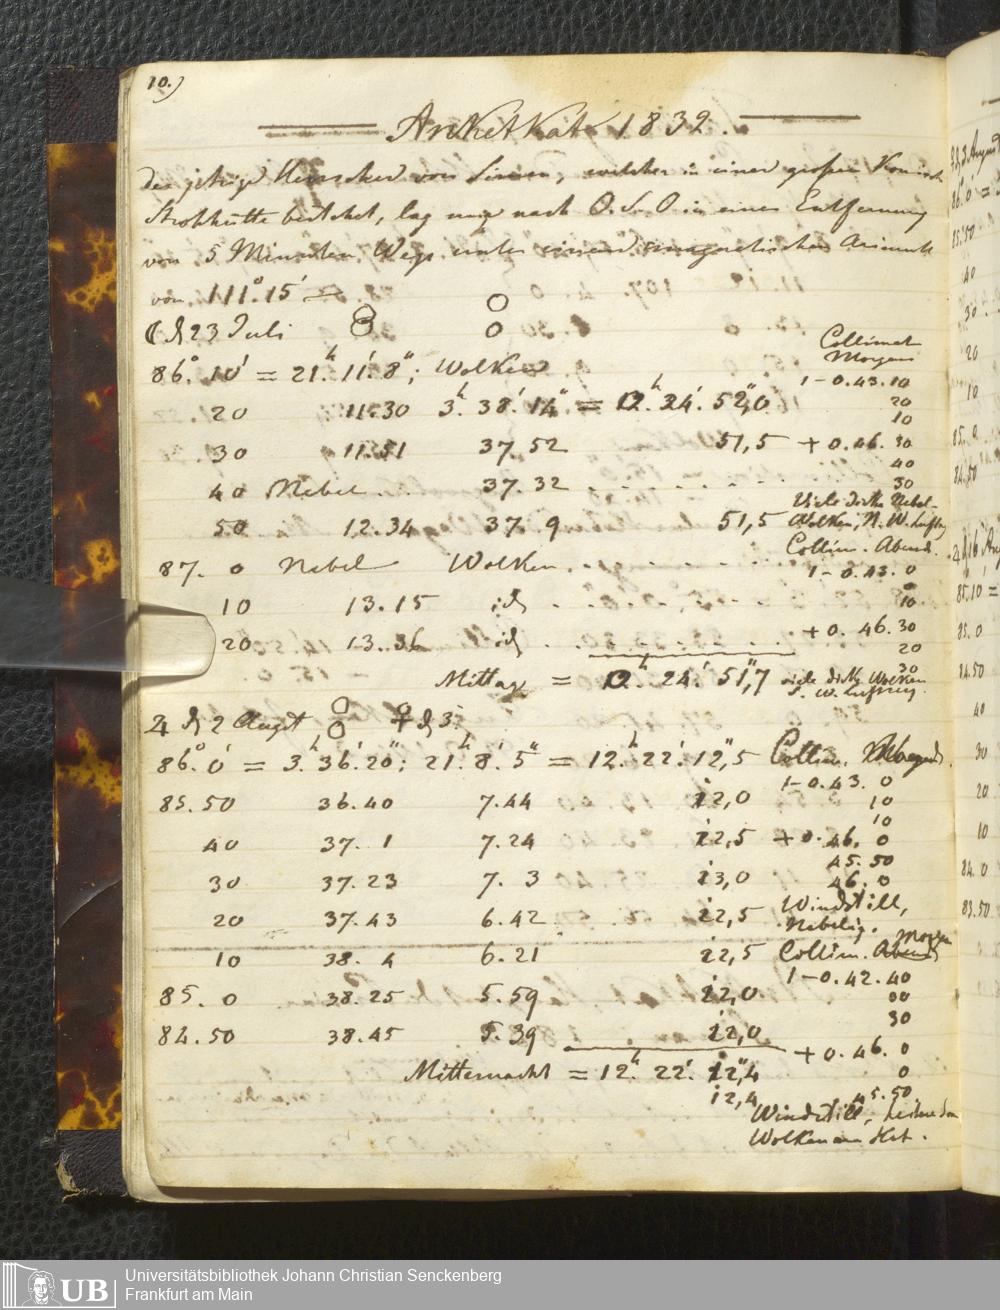 10.)
Anketkab 1832.
Der jetzige Herrscher von Simen, welcher in einer grossen Konisch
Strohhütte bestehet, lag mir nach O.S.O. in einer Entfernung
von 5 Minuten Wegs unter einem magnetischen Azimuth
von 111° 15' —
☾ d 23 Juli
86.° 10' = 21.h 11.' 8"; Wolken
20 11.30 3.h 38.' 14" = 0.h 24.' 52",0
30 11.51 37.52 51,5
40 Nebel 37.32
50 12.34 37.9 51,5
87. 0 Nebel Wolken
10 13.15 id
20 13.36 id
Mittag = 0.h 24.' 51",7
Collimat Morgens
1 - 0.43.10
20
10
+ 0.46.30
40
30
Viele dicke Nebel-
Wolken, N.W. Luftzg
Collim. Abend.
1 - 0.43.0
0
10
+ 0.46.30
20
30
viele dicke Wolken
S. W. Luftzug.
♃ d 2 Augt ♀ d 3.
86.° 0' = 3.h 36.' 20"; 21.h 8.' 5" = 12.h 22.' 12",5
85.50 36.40 7.44 12,0
40 37.1 7.24 12,5
30 37.23 7.3 13,0
20 37.43 6.42 12,5
10 38.4 6.21 12,5
85. 0 38.25 5.59 12,0
84.50 38.45 5.39 12,0
Mitternacht = 12.h 22.' 12",4
12,4
Collim. Abends
1 - 0.43. 0
10
10
+ 0.46. 0
45.50
46. 0
Windstill,
Nebelig.
Collim. Morgen
1 - 0.42.40
30
30
+ 0.46. 0
0
45.50
Windstill,
Wolken am Hct.
UB
Universitätsbibliothek Johann Christian Senckenberg
Frankfurt am Main